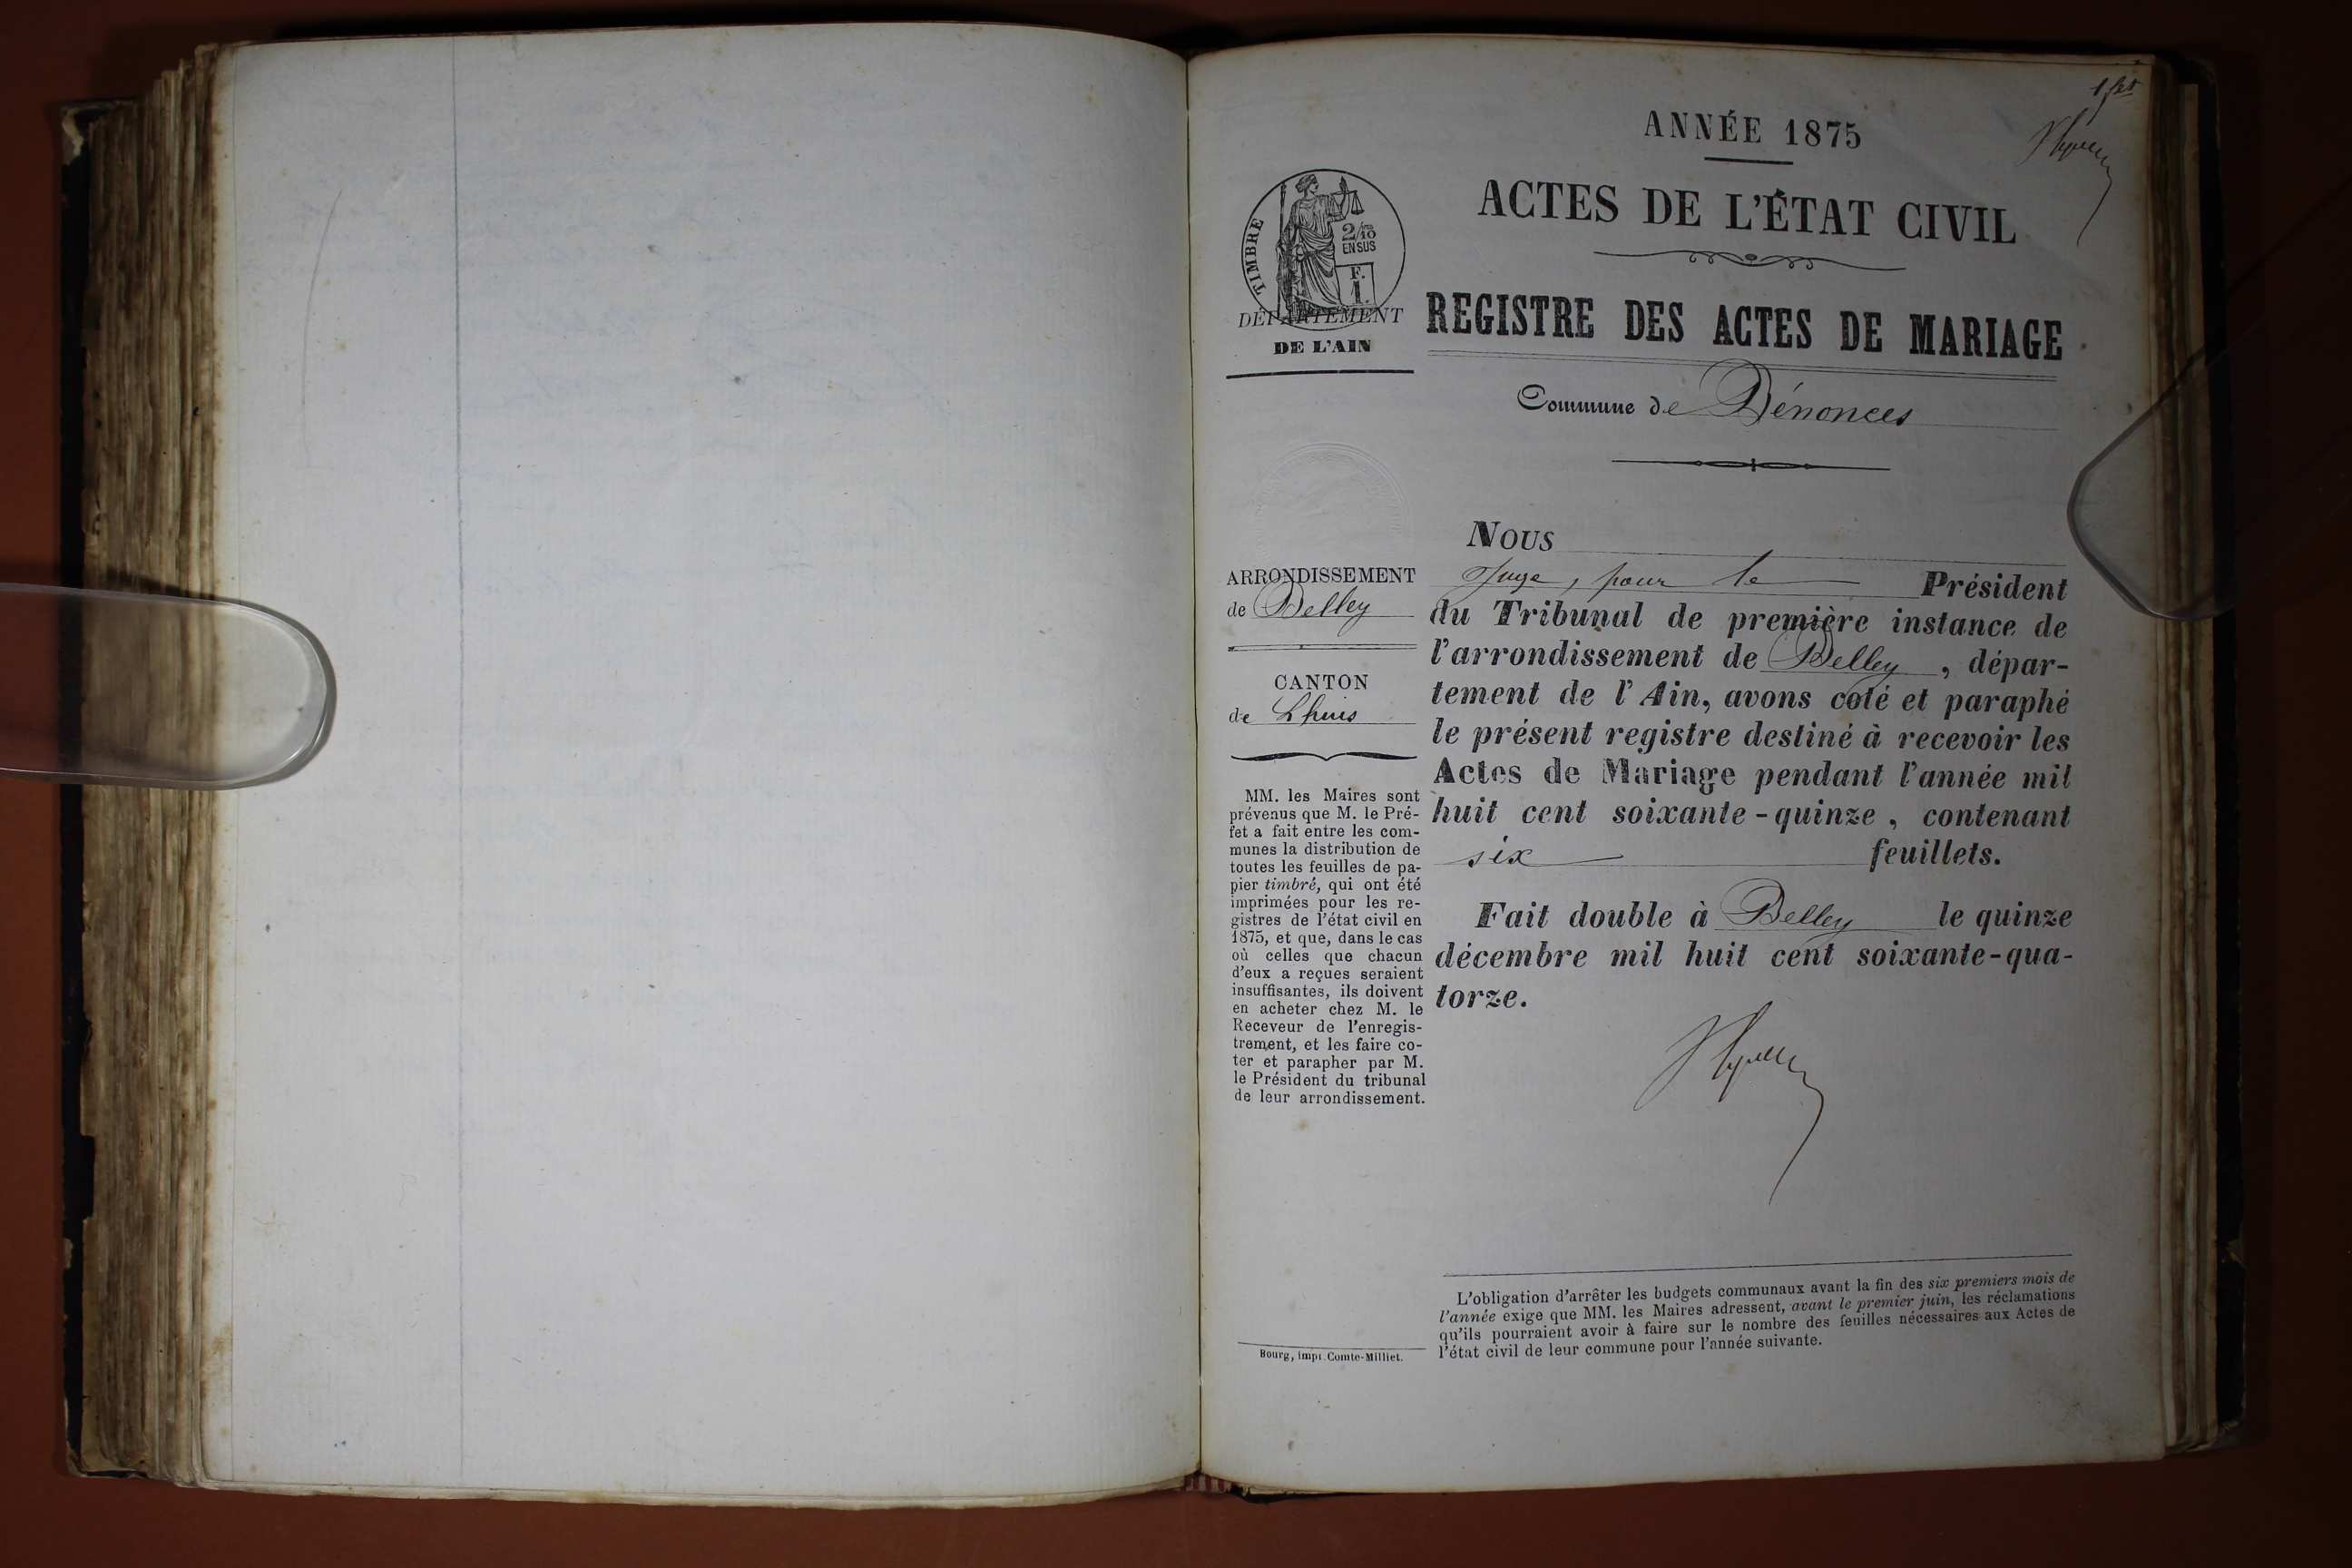 1 f.et
ANNÉE 1875
ACTES DE L'ÉTAT CIVIL
TIMBRE
2/10
EN SUS
F.
1.
DÉPARTEMENT
DE L'AIN
REGISTRE DES ACTES DE MARIAGE
Commune de Bénonces
ARRONDISSEMENT
de Belley
CANTON
de Lhuis
MM. les Maires sont
prévenus que M. le Pré-
fet a fait entre les com-
munes la distribution de
toutes les feuilles de pa-
pier timbré, qui ont été
imprimées pour les re-
gistres de l'état civil en
1875, et que, dans le cas
où celles que chacun
d'eux a reçues seraient
insuffisantes, ils doivent
en acheter chez M. le
Receveur de l'enregis-
trement, et les faire co-
ter et parapher par M.
le Président du tribunal
de leur arrondissement.
Bourg, impr. Comte-Milliet.
NOUS
Juge, pour le Président
du Tribunal de première instance de
l'arrondissement de Belley, dépar-
tement de l'Ain, avons coté et paraphé
le présent registre destiné à recevoir les
Actes de Mariage pendant l'année mil
huit cent soixante-quinze, contenant
six feuillets.
Fait double à Belley le quinze
décembre mil huit cent soixante-qua-
torze.
L'obligation d'arrêter les budgets communaux avant la fin des six premiers mois de
l'année exige que MM. les Maires adressent, avant le premier juin, les réclamations
qu'ils pourraient avoir à faire sur le nombre des feuilles nécessaires aux Actes de
l'état civil de leur commune pour l'année suivante.